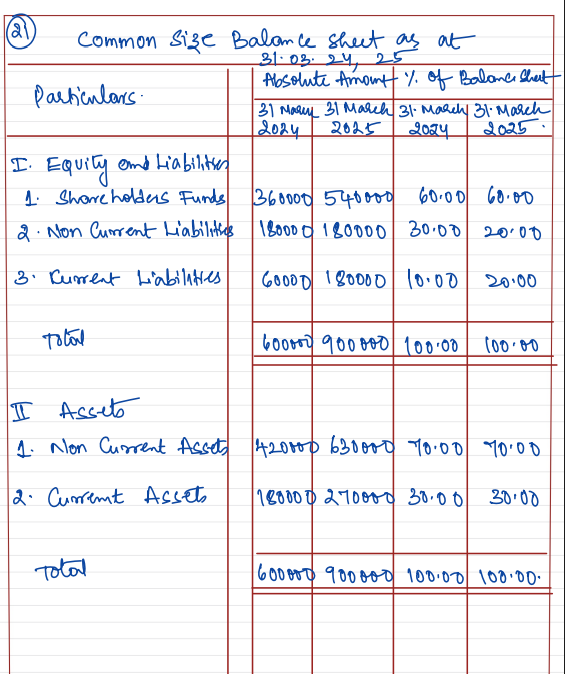 21
Common Size Balance Sheet as at
31.03.24, 25
Particulars.
Absolute Amount % of Balance Sheet
31 March 31 March 31. March 31. March
2024 2025 2024 2025.
I. Equity and Liabilities
1. Shareholders Funds 360000 540000 60.00 60.00
2. Non Current Liabilities 180000 180000 30.00 20.00
3. Current Liabilities 60000 180000 10.00 20.00
Total 600000 900000 100.00 100.00
II Assets
1. Non Current Assets 420000 630000 70.00 70.00
2. Current Assets 180000 270000 30.00 30.00
Total 600000 900000 100.00 100.00.